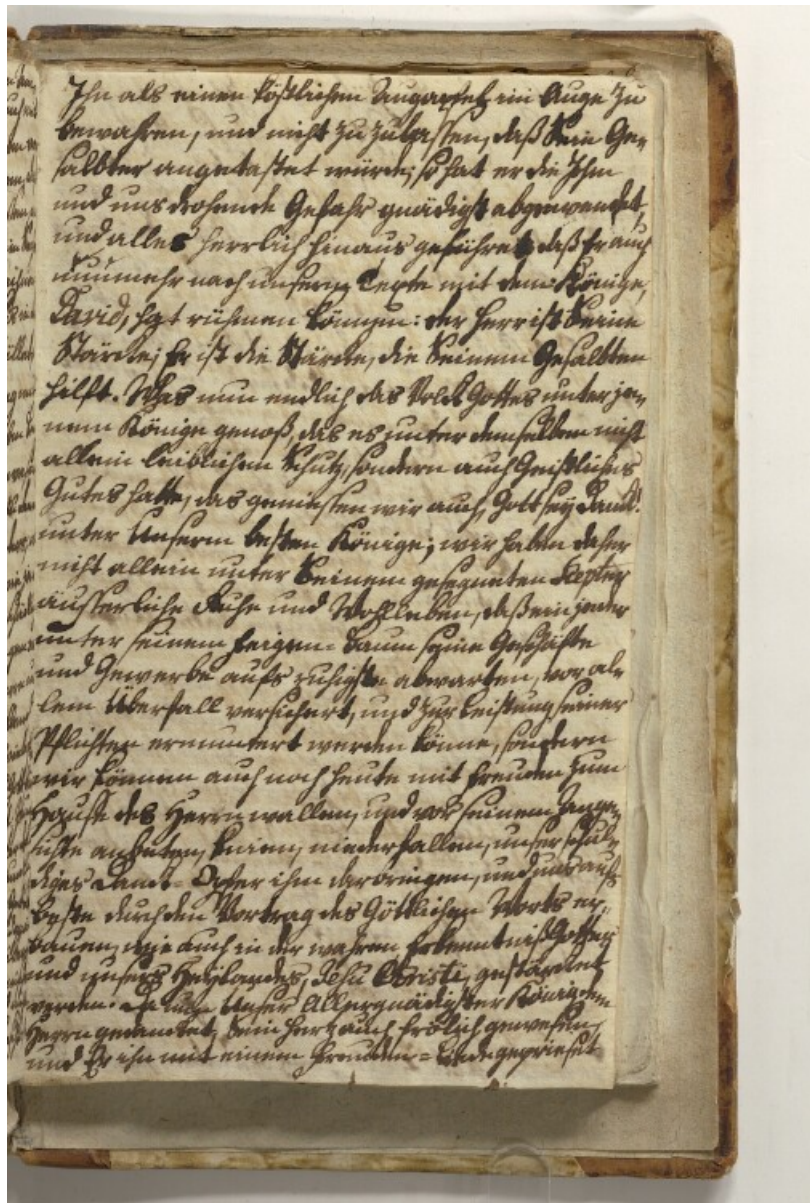 Ihn als einen köstlichen Augapfel im Auge zu
bewahren, und nicht zuzulassen, daß Sein Ge-
salbter angetastet würde; so hat er die Ihm
und uns drohende Gefahr gnädigst abgewendet,
und alles herrlich hinaus geführet, daß Er auch
nunmehr nach unserm Texte mit dem Könige,
David, hat rühmen können: der Herr ist Seine
Stärcke; Er ist die Stärcke, die Seinem Gesalbten
hilft. Was nun endlich das Volck Gottes unter je-
nem Könige genoß, das es unter demselben nicht
allein leiblichen Schutz, sondern auch Geistliches
Gutes hatte, das geniessen wir auch, Gott sey Danck!
unter Unserm besten Könige; wir haben daher
nicht allein unter Seinem gesegneten Scepter
äusserliche Ruhe und Wohlleben, daß ein jeder
unter seinem Feigen-Baum seine Geschäfte
und Gewerbe aufs ruhigste abwarten, vor al-
lem Überfall versichert, und zur Leistung seiner
Pflichten ermuntert werden könne, sondern
wir können auch noch heute mit Freuden zum
Hause des Herrn wallen, und vor seinem Ange-
sichte anbeten, knien, niederfallen, unser schul-
diges Danck-Opfer ihm darbringen, und uns aufs
beste durch den Vortrag des Göttlichen Worts er-
bauen, wie auch in der wahren Erkenntniß Gottes
und unsers Heylandes, Jesu Christi, gestärcket
werden. Da Unser Allergnädigster König dem
Herrn gedancket, Sein Hertz auch frölich gewesen,
und Er ihn mit einem Freuden-Liede gepriesen